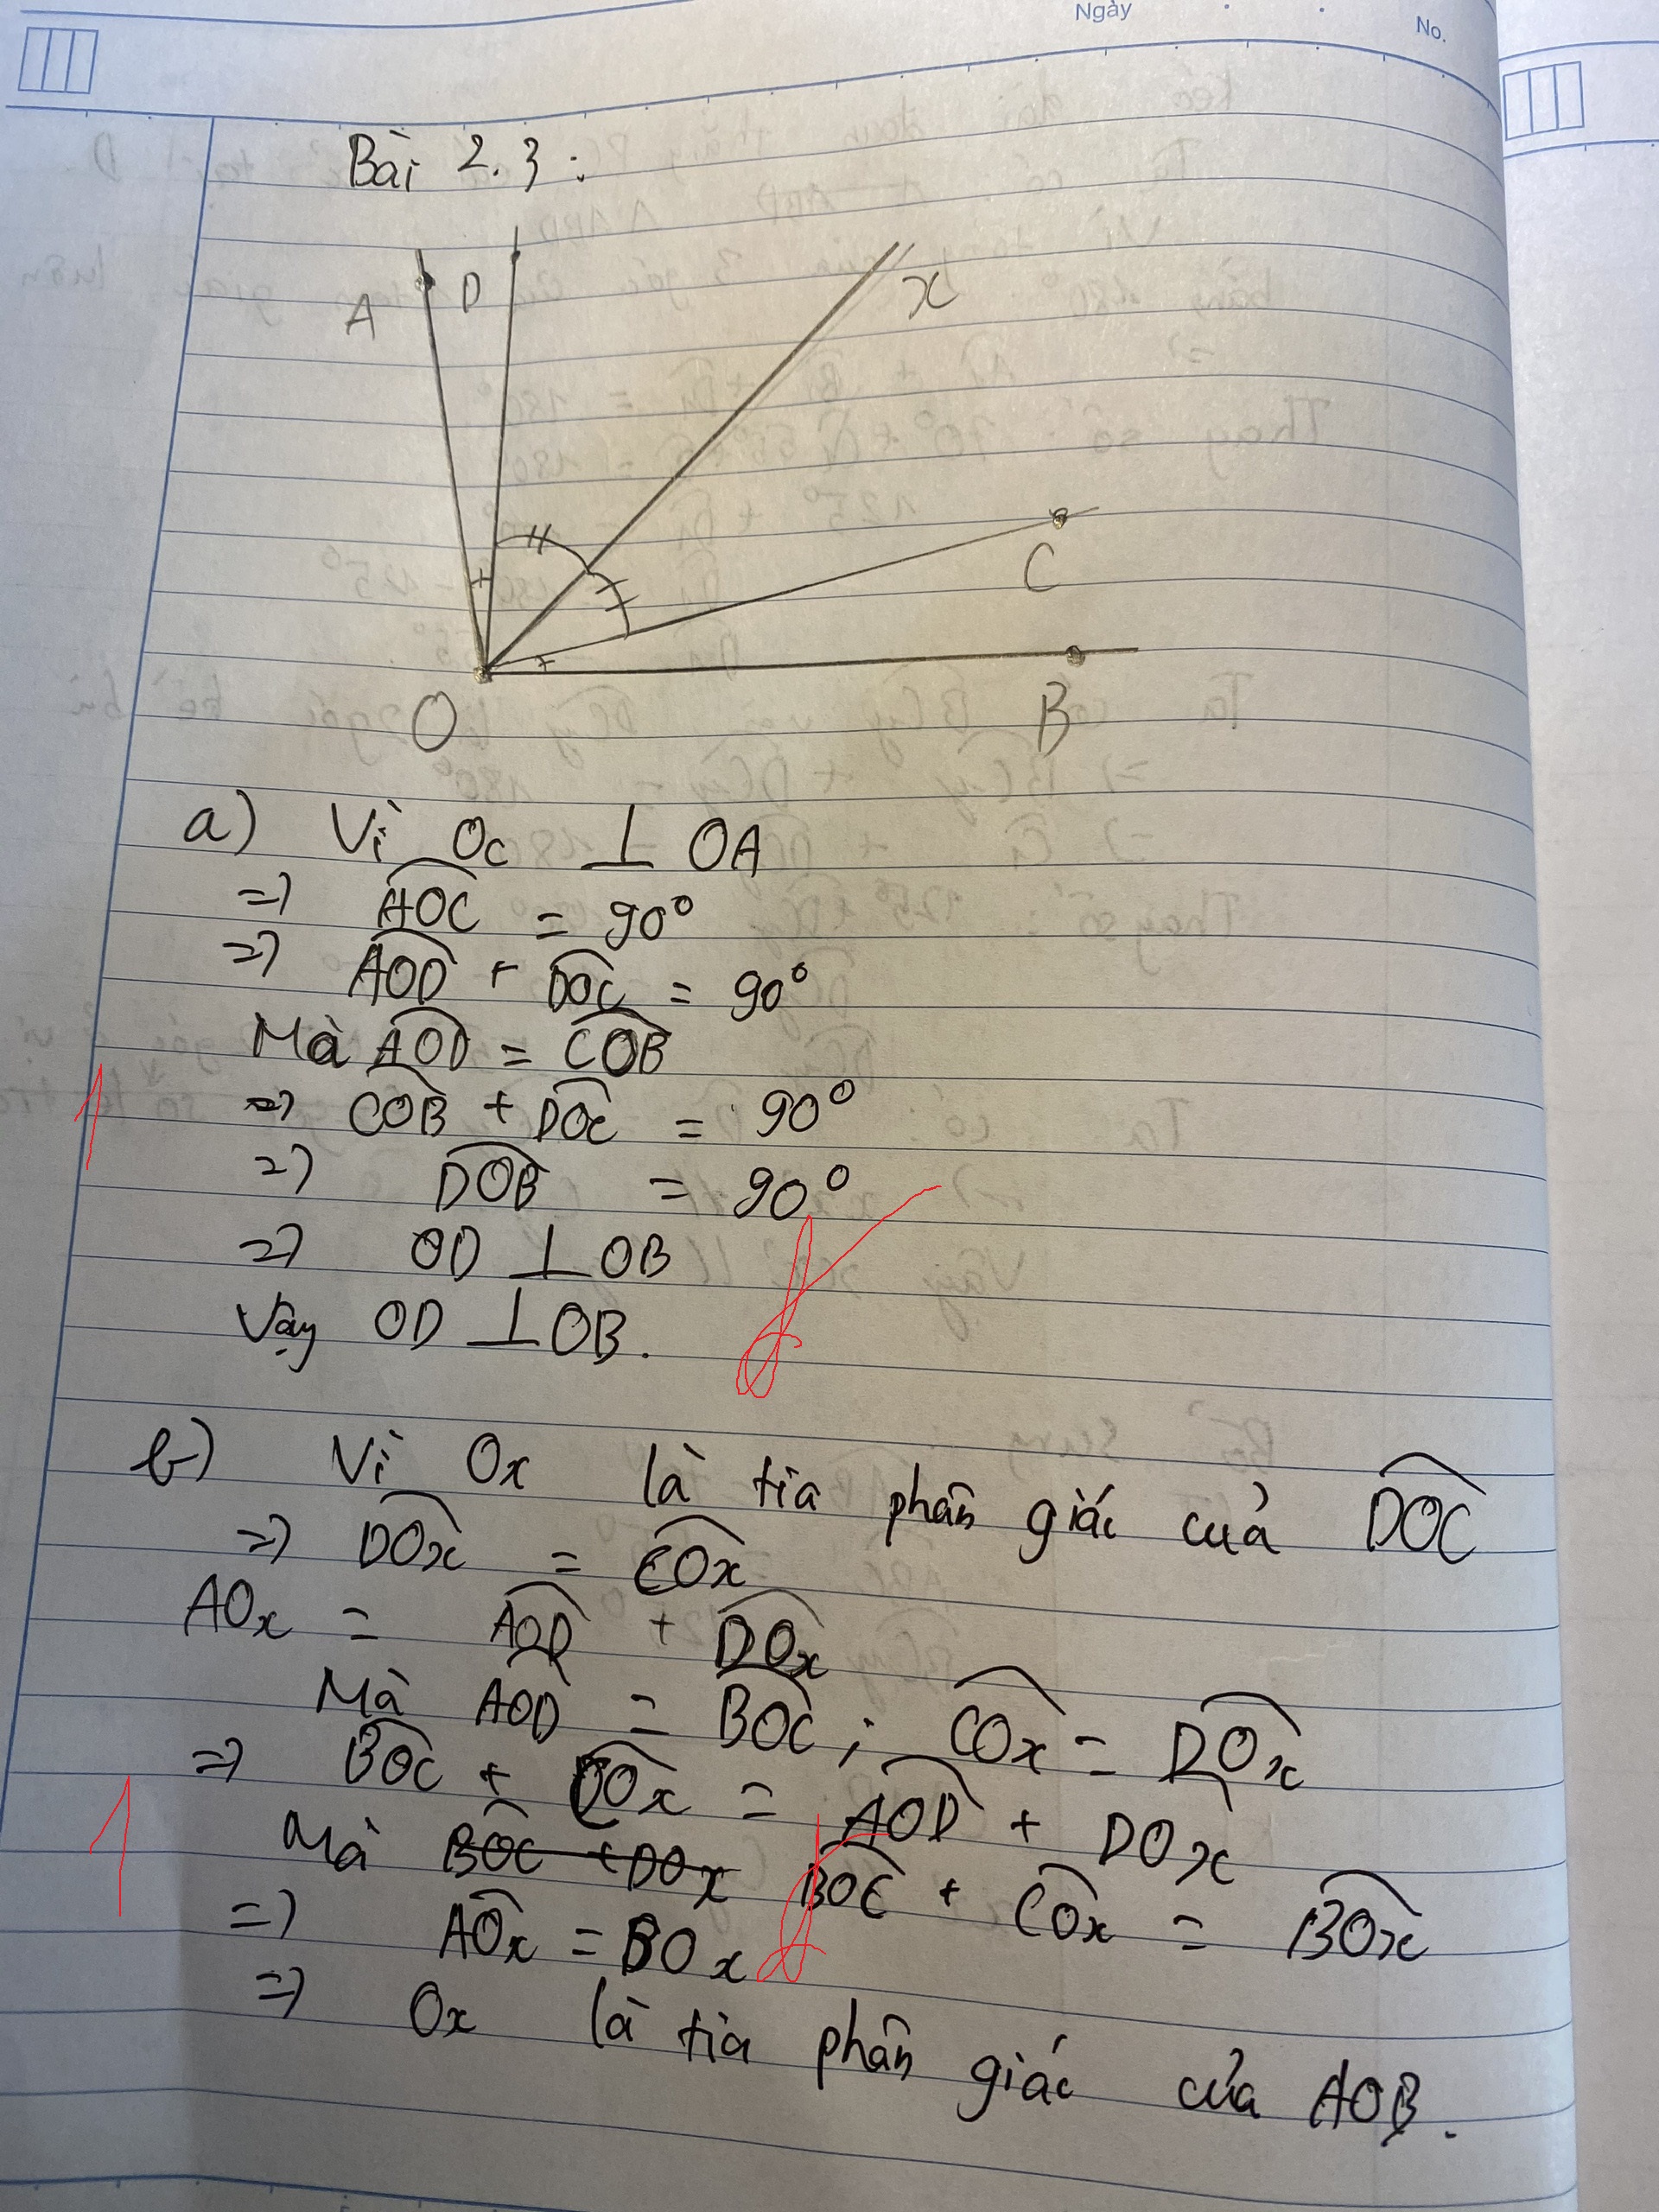 Ngày
No.
Bài 2.3:
A D x
C
O B
a) Vì Oc ⊥ OA
=> AOC = 90°
=> AOD + DOC = 90°
Mà AOD = COB
1 => COB + DOC = 90°
=> DOB = 90°
=> OD ⊥ OB
Vậy OD ⊥ OB.
b) Vì Ox là tia phân giác của DOC
=> DOx = COx
AOx = AOD + DOx
Mà AOD = BOC ; COx = DOx
=> BOC + COx = AOD + DOx
1 Mà BOC + DOx BOC + COx = BOx
=> AOx = BOx
=> Ox là tia phân giác của AOB.